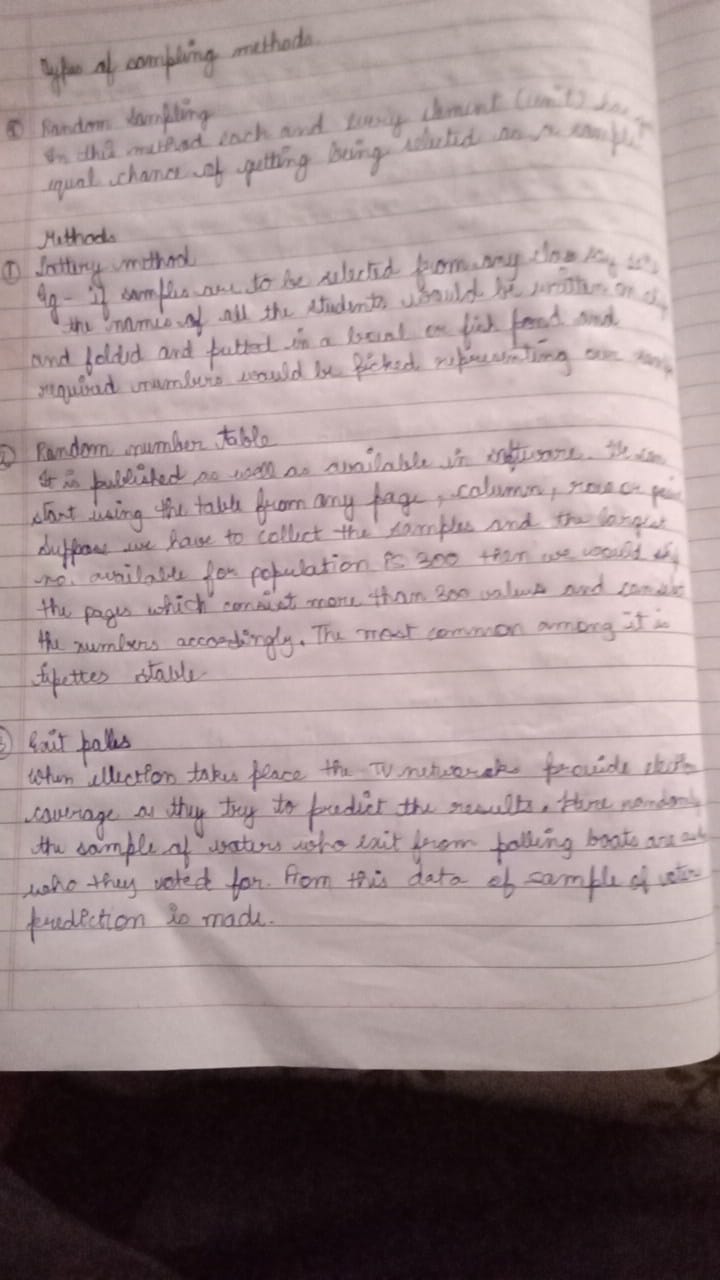 Types of sampling methods
① Random sampling
In this method each and every element (unit) has
equal chance of getting being selected as a sample
Methods
① Lottery method
Eg - if samples are to be selected from any class say
the names of all the students would be written on
and folded and putted in a bowl or fish pond and
required numbers would be picked representing our
Random number table
It is published as well as available in software. We can
start using the table from any page, column, row or
Suppose we have to collect the samples and the largest
no. available for population is 300 then we would
the pages which consist more than 300 values and
the numbers accordingly. The most common among it is
table
Exit polls
When ellection takes place the TV networks provide
coverage as they try to predict the results. Here randomly
the sample of voters who exit from polling boats are
who they voted for. From this data of sample of
prediction is made.